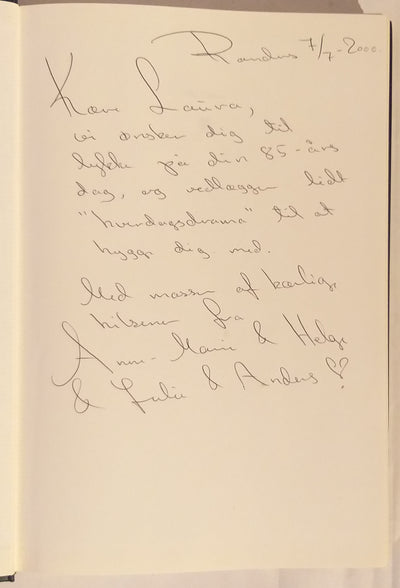 Randers 7/7-2000.
Kære Laura,
vi ønsker dig til
lykke på din 85-års
dag, og vedlægger lidt
"hverdagsdrama" til at
hygge dig med.
Med masser af kærlige
hilsener fra
Anne-Marie & Helge
& Julie & Anders